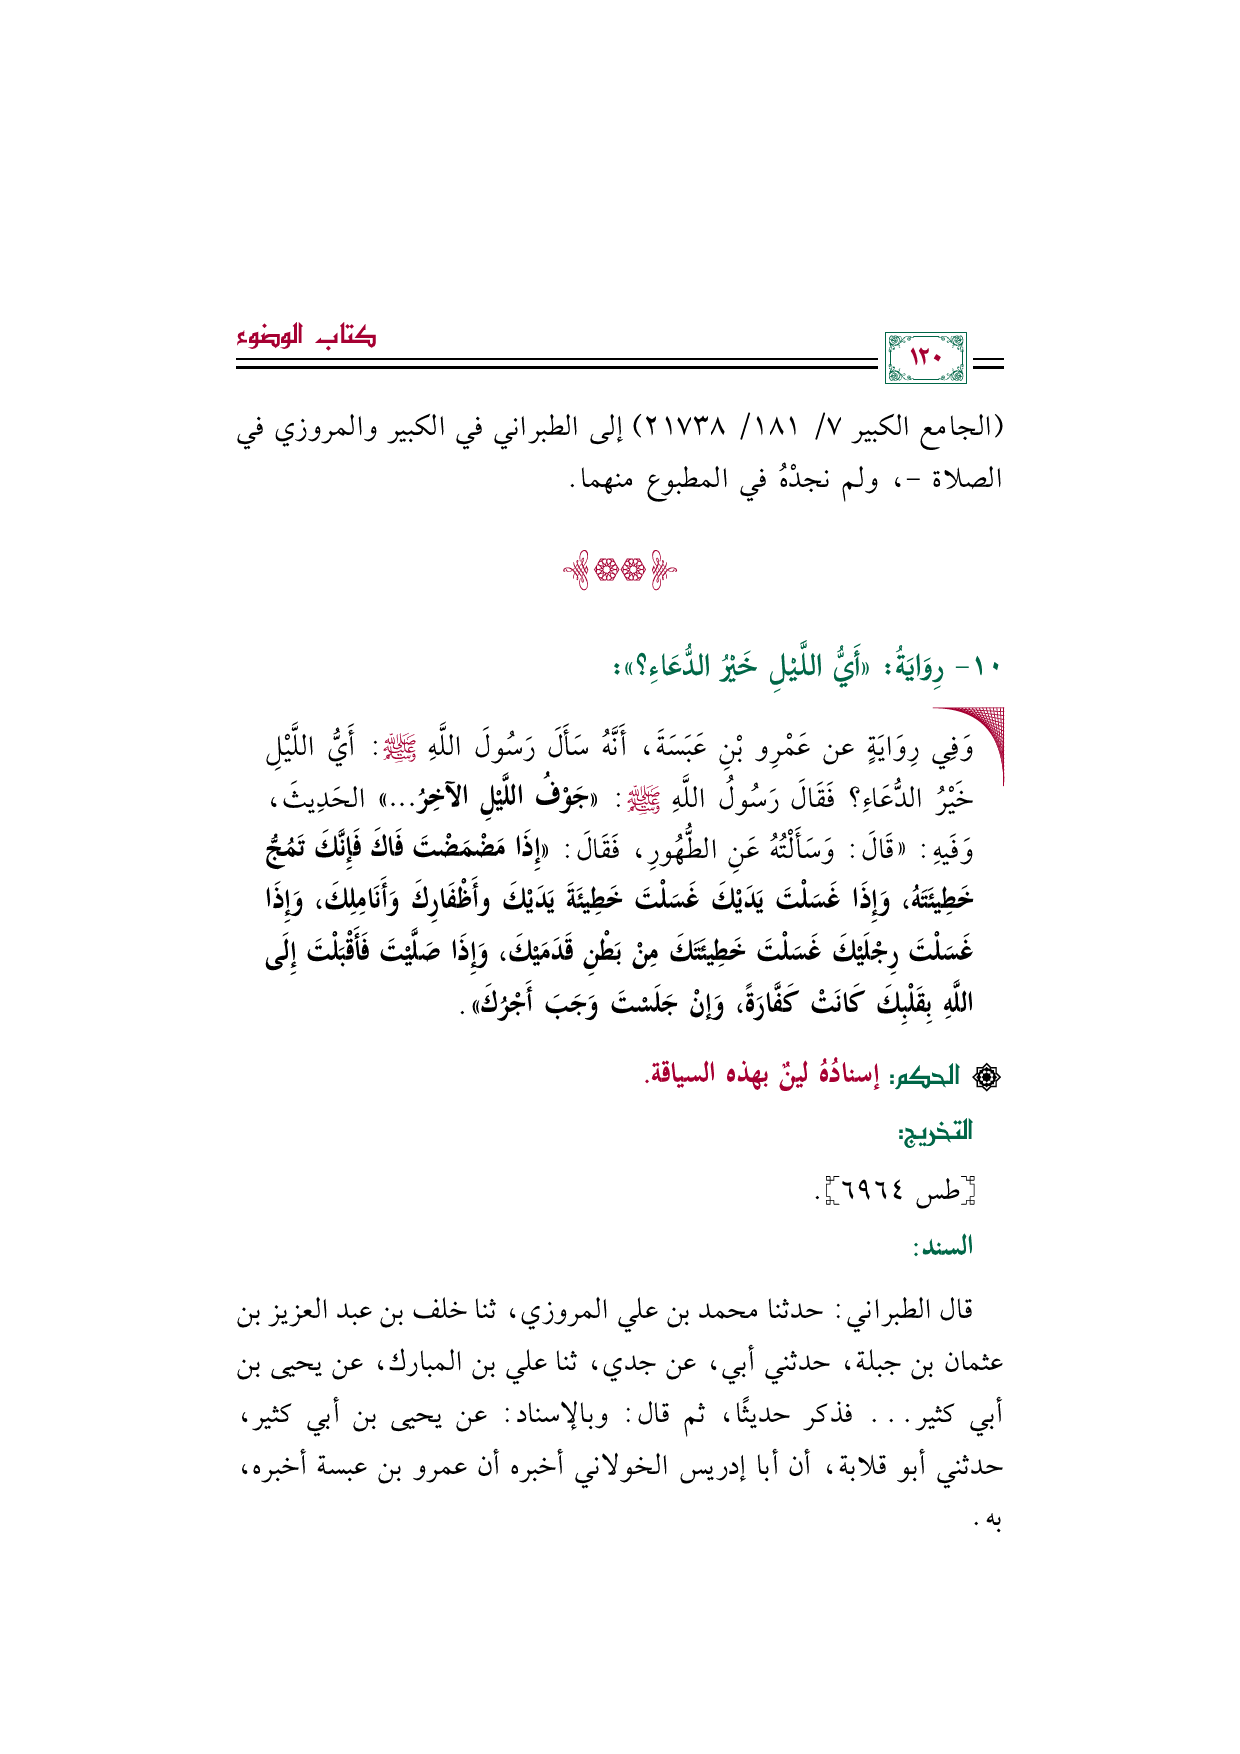 كتاب الوضوء
١٢٠
(الجامع الكبير ٧/ ١٨١/ ٢١٧٣٨) إلى الطبراني في الكبير والمروزي في
الصلاة -، ولم نجدْهُ في المطبوع منهما.
١٠- رِوَايَةُ: «أَيُّ اللَّيْلِ خَيْرُ الدُّعَاءِ؟»:
وَفِي رِوَايَةٍ عن عَمْرِو بْنِ عَبَسَةَ، أَنَّهُ سَأَلَ رَسُولَ اللَّهِ ﷺ: أَيُّ اللَّيْلِ
خَيْرُ الدُّعَاءِ؟ فَقَالَ رَسُولُ اللَّهِ ﷺ: «جَوْفُ اللَّيْلِ الآخِرُ...» الحَدِيثَ،
وَفَيهِ: «قَالَ: وَسَأَلْتُهُ عَنِ الطُّهُورِ، فَقَالَ: «إِذَا مَضْمَضْتَ فَاكَ فَإِنَّكَ تَمُجُّ
خَطِيئَتَهُ، وَإِذَا غَسَلْتَ يَدَيْكَ غَسَلْتَ خَطِيئَةَ يَدَيْكَ وأَظْفَارِكَ وَأَنَامِلِكَ، وَإِذَا
غَسَلْتَ رِجْلَيْكَ غَسَلْتَ خَطِيئَتَكَ مِنْ بَطْنِ قَدَمَيْكَ، وَإِذَا صَلَّيْتَ فَأَقْبَلْتَ إِلَى
اللَّهِ بِقَلْبِكَ كَانَتْ كَفَّارَةً، وَإِنْ جَلَسْتَ وَجَبَ أَجْرُكَ».
الحكم: إسنادُهُ لينٌ بهذه السياقة.
التخريج:
[طس ٦٩٦٤].
السند:
قال الطبراني: حدثنا محمد بن علي المروزي، ثنا خلف بن عبد العزيز بن
عثمان بن جبلة، حدثني أبي، عن جدي، ثنا علي بن المبارك، عن يحيى بن
أبي كثير... فذكر حديثًا، ثم قال: وبالإسناد: عن يحيى بن أبي كثير،
حدثني أبو قلابة، أن أبا إدريس الخولاني أخبره أن عمرو بن عبسة أخبره،
به.